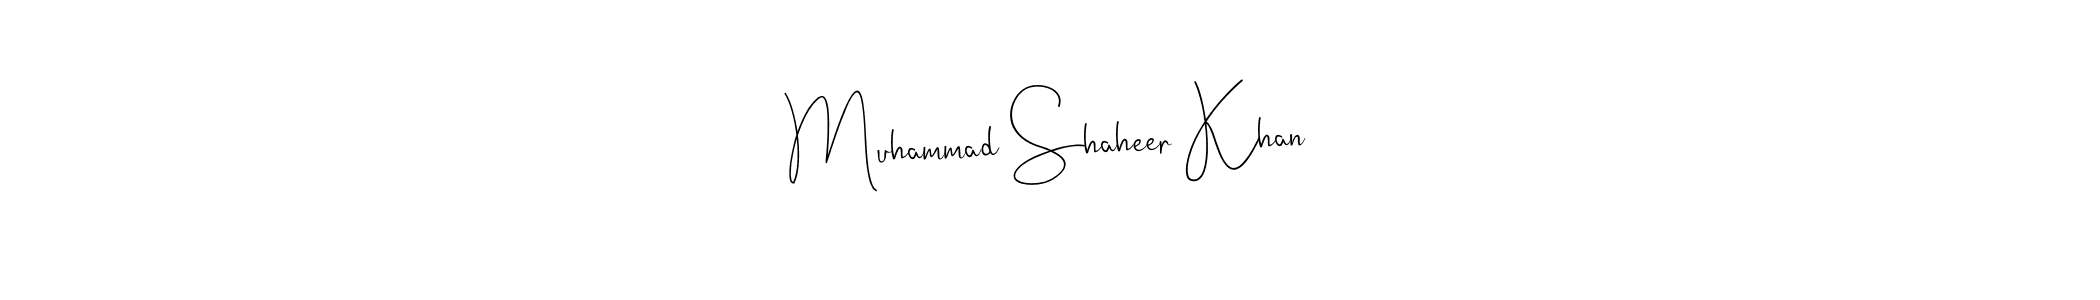 Muhammad Shaheer Khan